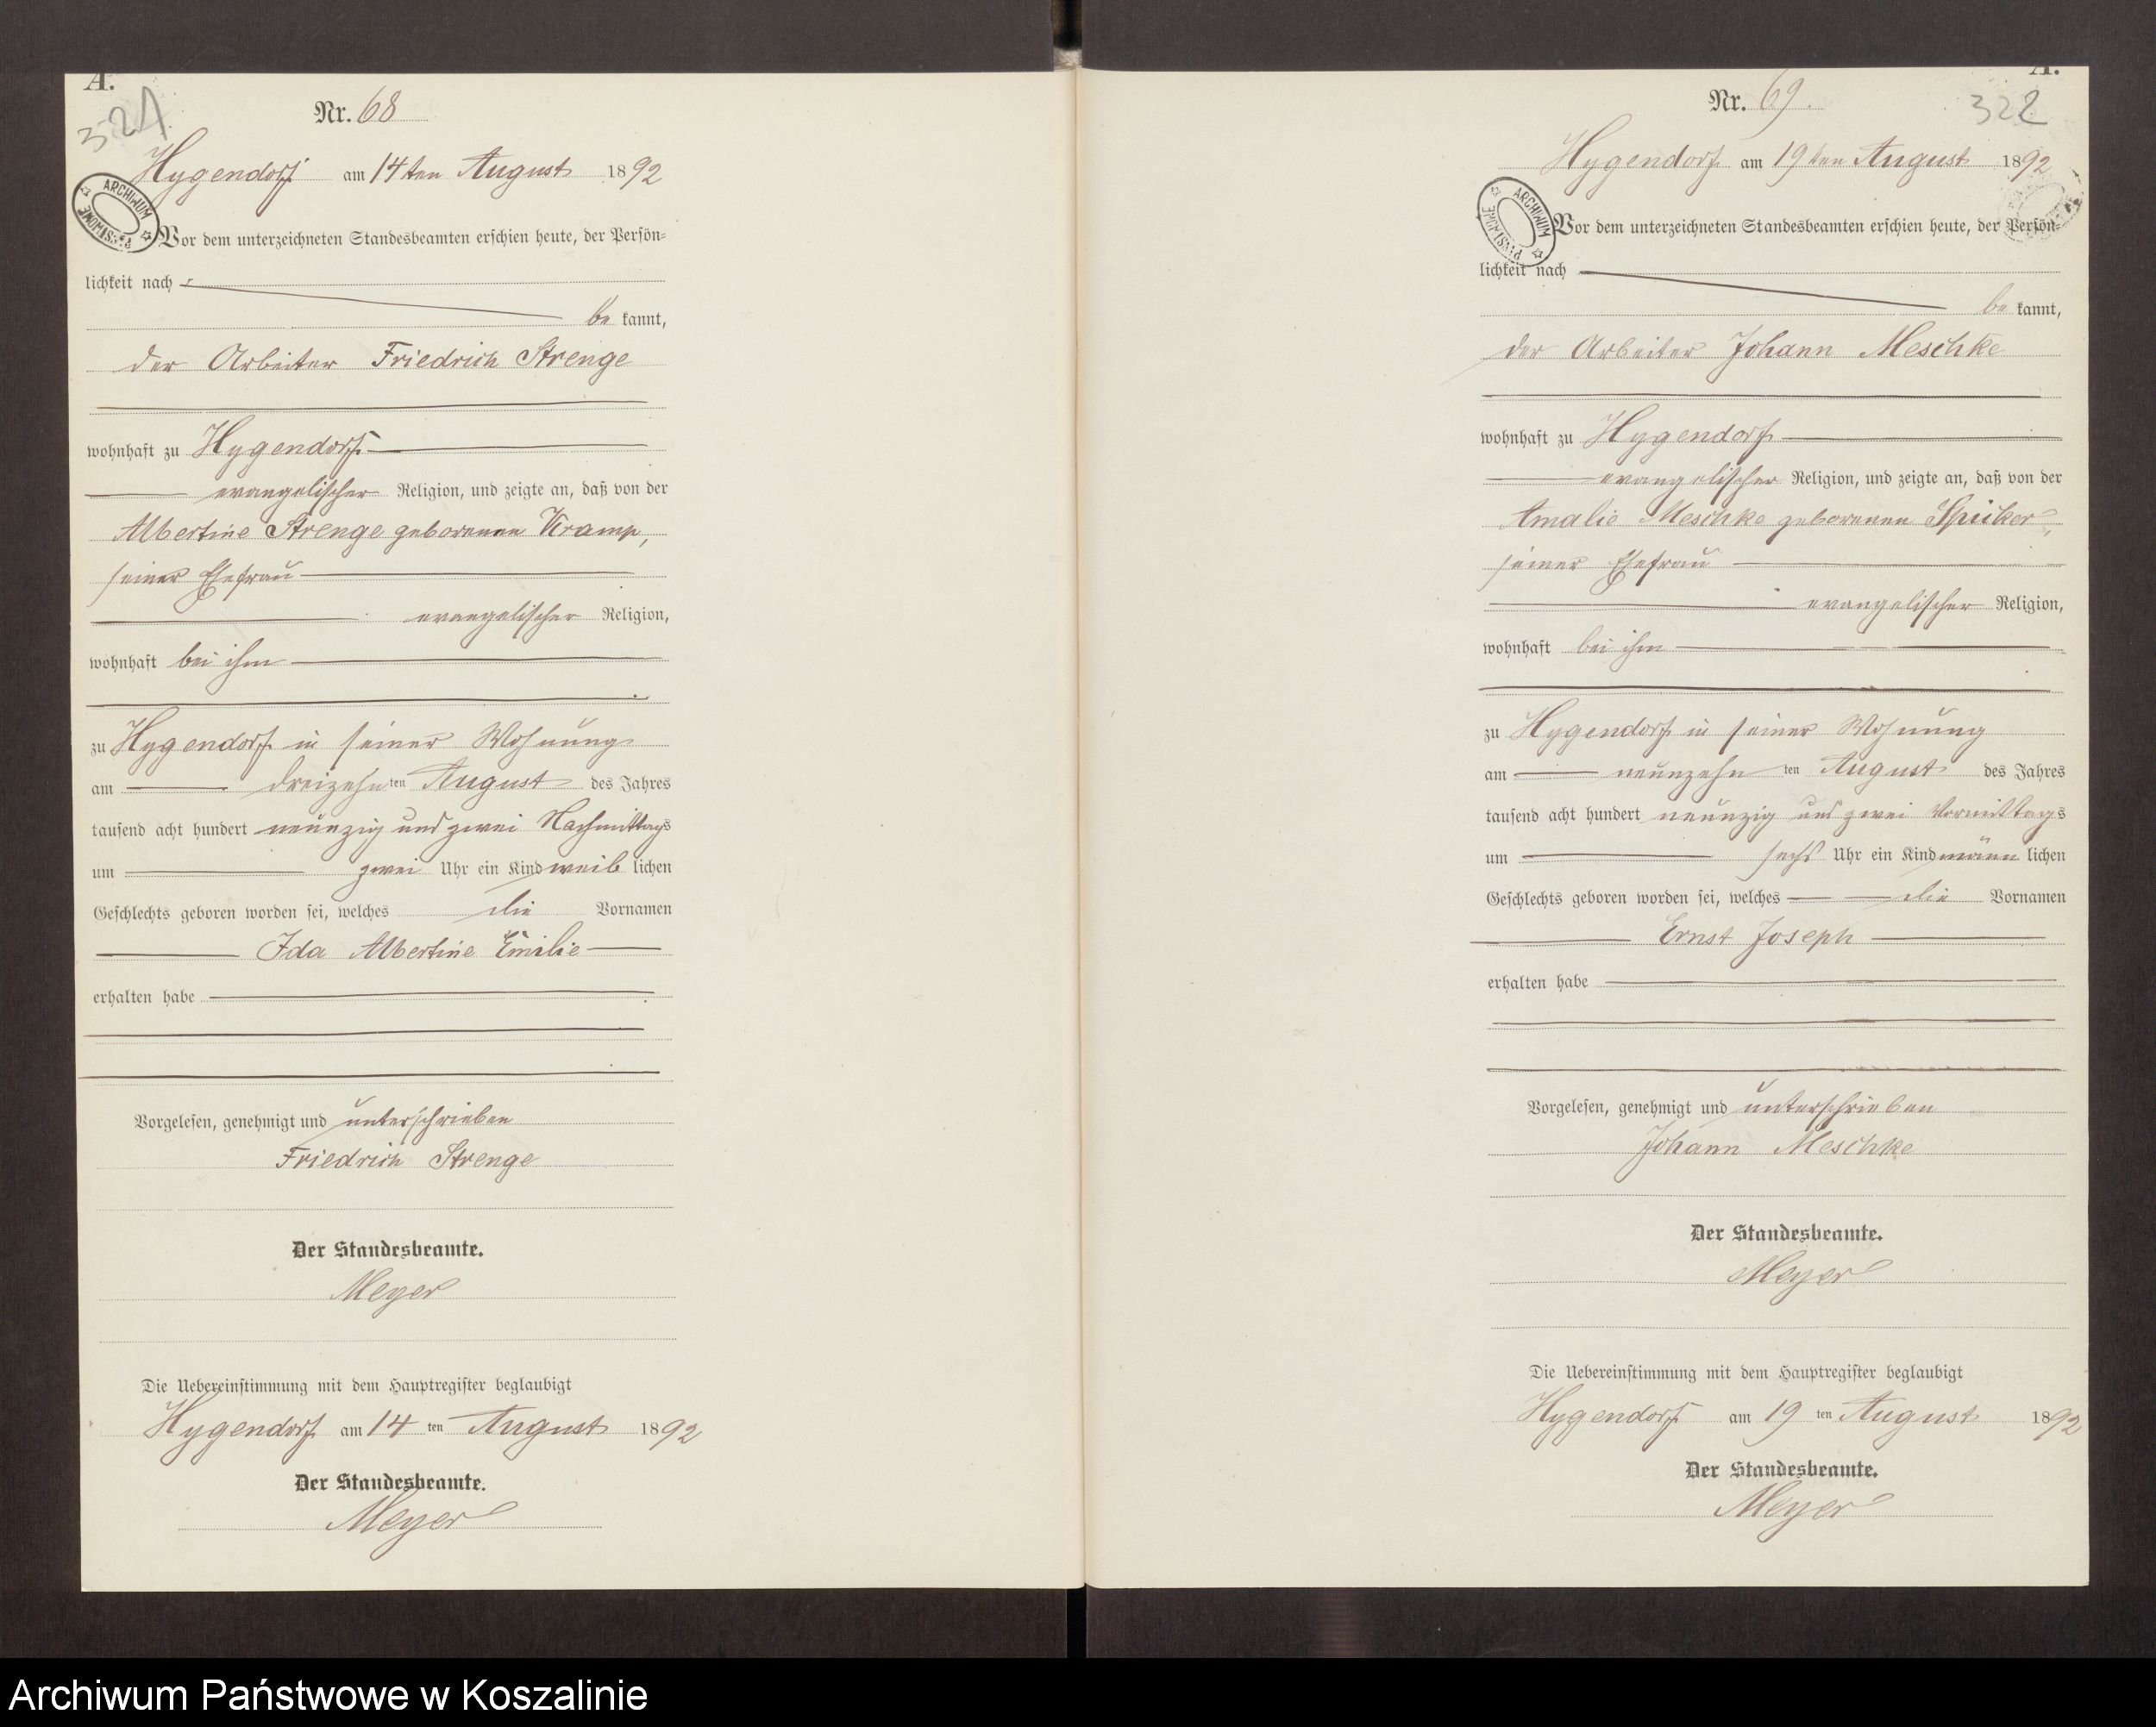 A.
321
Nr. 68
Hygendorf am 14ten August 1892
ARCHIWUM
Vor dem unterzeichneten Standesbeamten erschien heute, der Persön-
lichkeit nach
be kannt,
der Arbeiter Friedrich Strenge
wohnhaft zu Hygendorf
evangelischer Religion, und zeigte an, daß von der
Albertine Strenge geborenen Kramp,
seiner Ehefrau
evangelischer Religion,
wohnhaft bei ihm
zu Hygendorf in seiner Wohnung
am dreizehn ten August des Jahres
tausend acht hundert neunzig und zwei Nachmittags
um zwei Uhr ein Kind weib lichen
Geschlechts geboren worden sei, welches die Vornamen
Ida Albertine Emilie
erhalten habe
Vorgelesen, genehmigt und unterschrieben
Friedrich Strenge
Der Standesbeamte.
Meyer
Die Uebereinstimmung mit dem Hauptregister beglaubigt
Hygendorf am 14 ten August 1892
Der Standesbeamte.
Meyer
A.
322
Nr. 69.
Hygendorf am 19ten August 1892
ARCHIWUM
Vor dem unterzeichneten Standesbeamten erschien heute, der Persön-
lichkeit nach
be kannt,
der Arbeiter Johann Meschke
wohnhaft zu Hygendorf
evangelischer Religion, und zeigte an, daß von der
Amalie Meschke geborenen Spicker,
seiner Ehefrau
evangelischer Religion,
wohnhaft bei ihm
zu Hygendorf in seiner Wohnung
am neunzehn ten August des Jahres
tausend acht hundert neunzig und zwei Vormittags
um sechs Uhr ein Kind männ lichen
Geschlechts geboren worden sei, welches die Vornamen
Ernst Joseph
erhalten habe
Vorgelesen, genehmigt und unterschrieben
Johann Meschke
Der Standesbeamte.
Meyer
Die Uebereinstimmung mit dem Hauptregister beglaubigt
Hygendorf am 19 ten August 1892
Der Standesbeamte.
Meyer
Archiwum Państwowe w Koszalinie